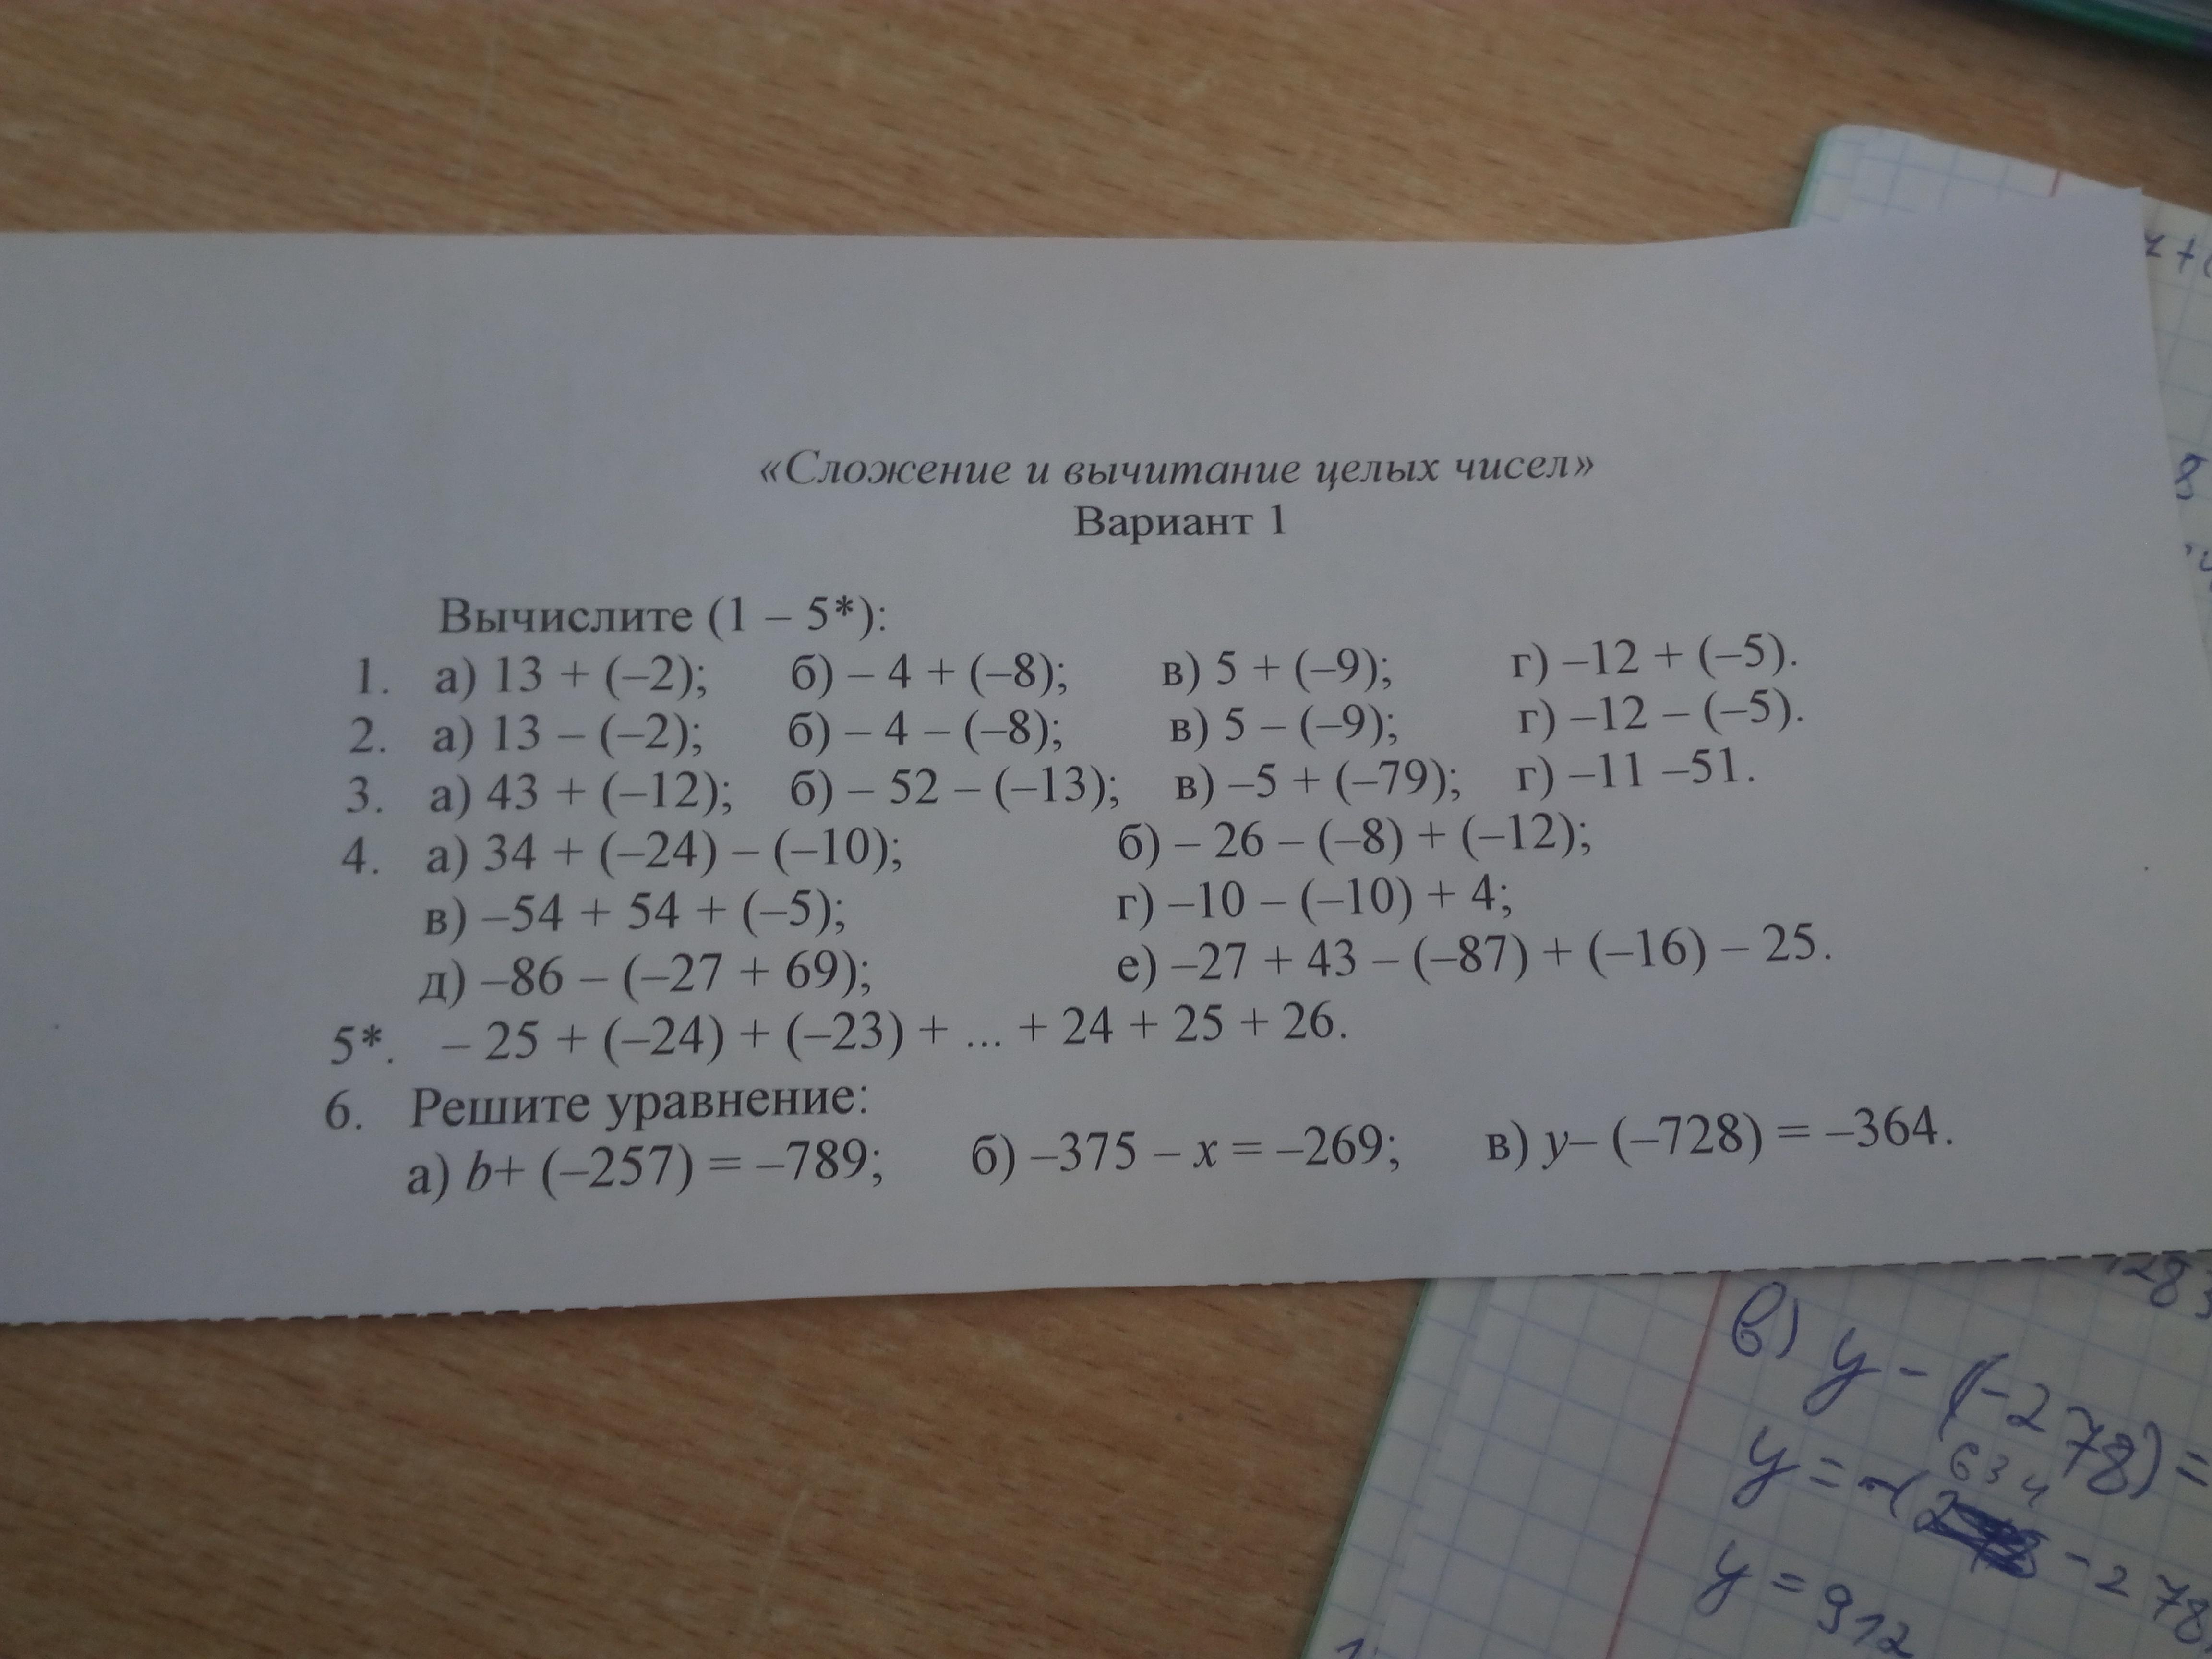 «Сложение и вычитание целых чисел»
Вариант 1
Вычислите (1 – 5*):
1. а) 13 + (–2); б) – 4 + (–8); в) 5 + (–9); г) –12 + (–5).
2. а) 13 – (–2); б) – 4 – (–8); в) 5 – (–9); г) –12 – (–5).
3. а) 43 + (–12); б) – 52 – (–13); в) –5 + (–79); г) –11 –51.
4. а) 34 + (–24) – (–10); б) – 26 – (–8) + (–12);
в) –54 + 54 + (–5); г) –10 – (–10) + 4;
д) –86 – (–27 + 69); е) –27 + 43 – (–87) + (–16) – 25.
5*. – 25 + (–24) + (–23) + ... + 24 + 25 + 26.
6. Решите уравнение:
а) b+ (–257) = –789; б) –375 – x = –269; в) y– (–728) = –364.
в) y - (-278) =
634
y = -( - 278
y = 912